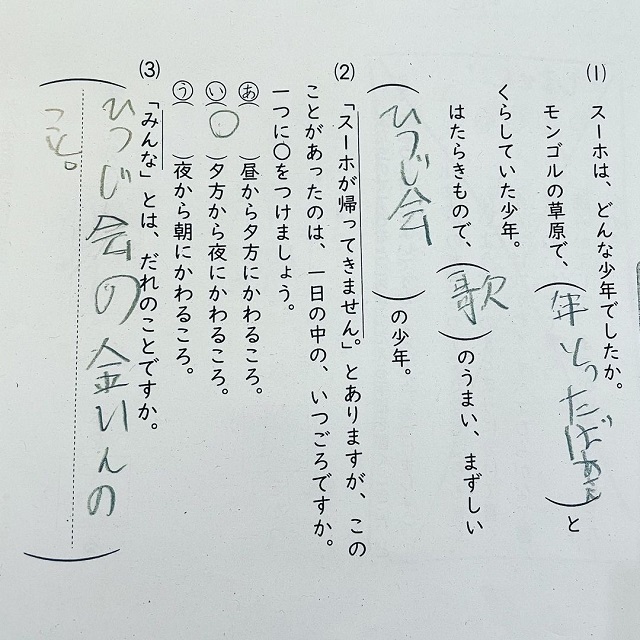 (1) スーホは、どんな少年でしたか。
モンゴルの草原で、(年とったばあさん)と
くらしていた少年。
はたらきもので、(歌)のうまい、まずしい
(ひつじ会)の少年。
(2) 「スーホが帰ってきません。」とありますが、この
ことがあったのは、一日の中の、いつごろですか。
一つに○をつけましょう。
あ( )昼から夕方にかわるころ。
い(○)夕方から夜にかわるころ。
う( )夜から朝にかわるころ。
(3) 「みんな」とは、だれのことですか。
(ひつじ会の金いんの
こと。)